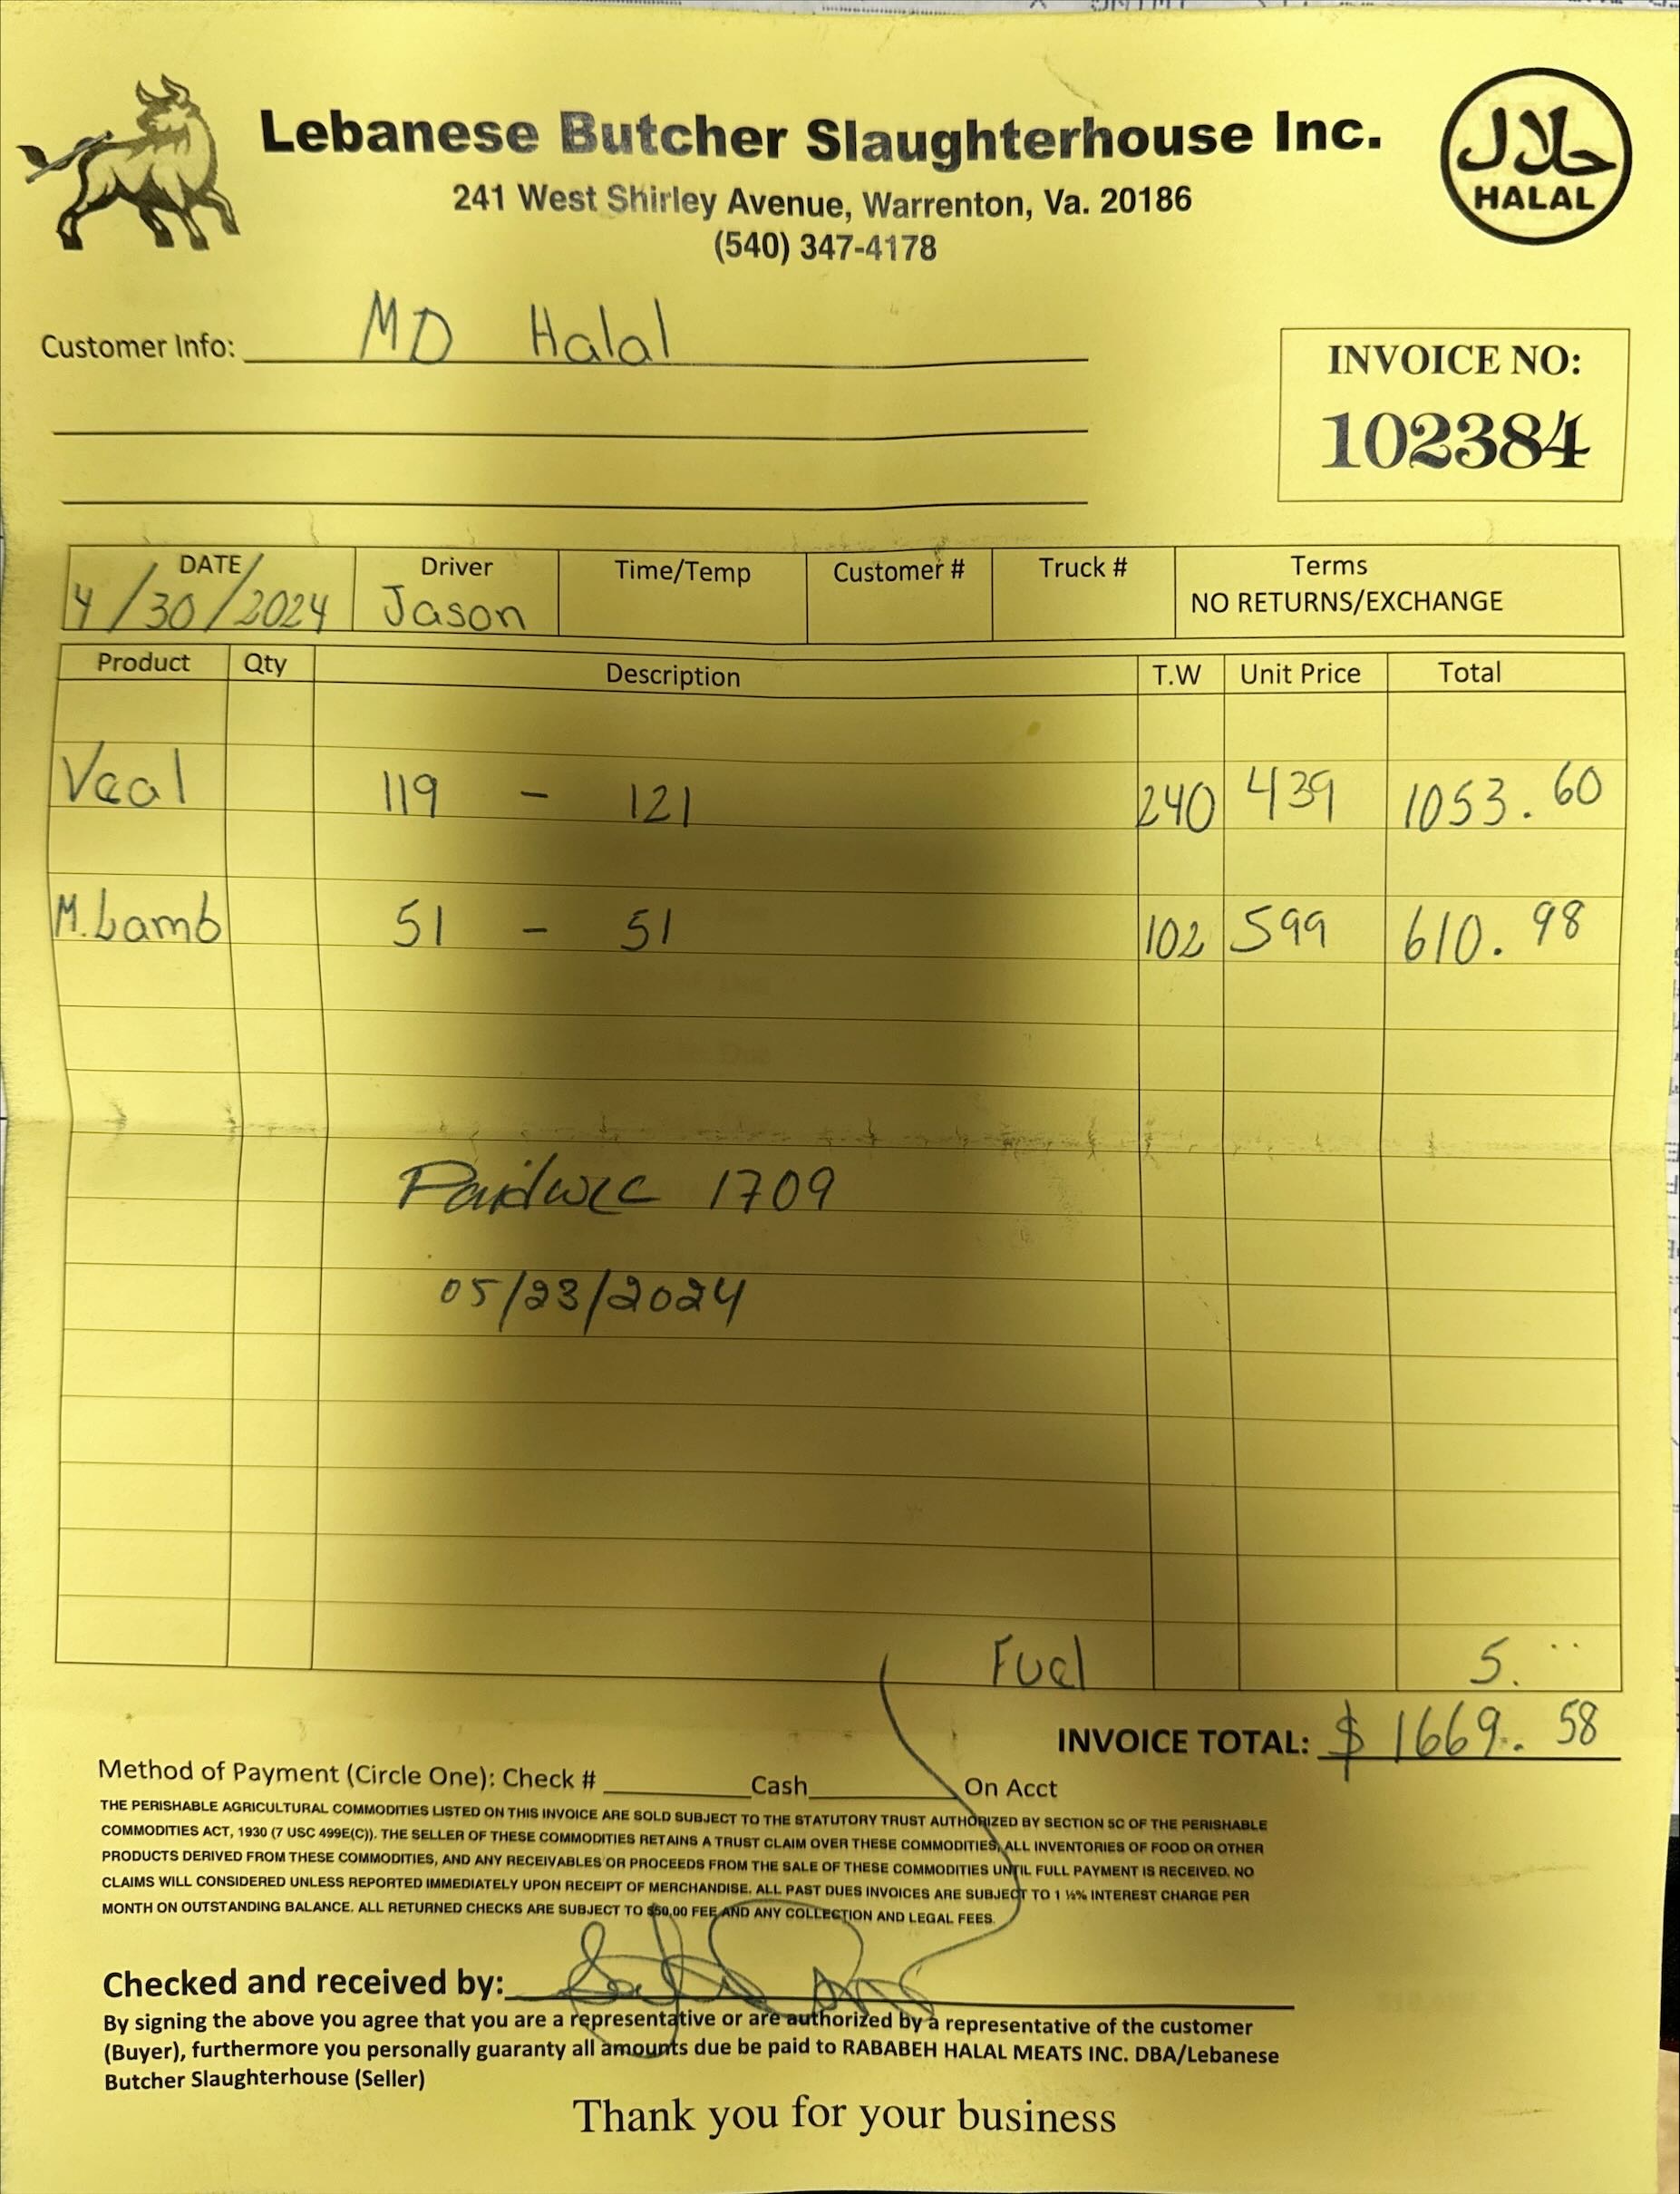 Lebanese Butcher Slaughterhouse Inc.
241 West Shirley Avenue, Warrenton, Va. 20186
(540) 347-4178
حلال
HALAL
Customer Info: MD Halal
INVOICE NO:
102384
DATE Driver Time/Temp Customer # Truck # Terms
4/30/2024 Jason NO RETURNS/EXCHANGE
Product Qty Description T.W Unit Price Total
Veal 119 - 121 240 439 1053.60
M.Lamb 51 - 51 102 599 610.98
Paid 1709
05/23/2024
Fuel 5.
INVOICE TOTAL: $ 1669.58
Method of Payment (Circle One): Check # Cash On Acct
THE PERISHABLE AGRICULTURAL COMMODITIES LISTED ON THIS INVOICE ARE SOLD SUBJECT TO THE STATUTORY TRUST AUTHORIZED BY SECTION 5C OF THE PERISHABLE
COMMODITIES ACT, 1930 (7 USC 499E(C)). THE SELLER OF THESE COMMODITIES RETAINS A TRUST CLAIM OVER THESE COMMODITIES, ALL INVENTORIES OF FOOD OR OTHER
PRODUCTS DERIVED FROM THESE COMMODITIES, AND ANY RECEIVABLES OR PROCEEDS FROM THE SALE OF THESE COMMODITIES UNTIL FULL PAYMENT IS RECEIVED. NO
CLAIMS WILL CONSIDERED UNLESS REPORTED IMMEDIATELY UPON RECEIPT OF MERCHANDISE. ALL PAST DUES INVOICES ARE SUBJECT TO 1 ½% INTEREST CHARGE PER
MONTH ON OUTSTANDING BALANCE. ALL RETURNED CHECKS ARE SUBJECT TO $50.00 FEE AND ANY COLLECTION AND LEGAL FEES.
Checked and received by:
By signing the above you agree that you are a representative or are authorized by a representative of the customer
(Buyer), furthermore you personally guaranty all amounts due be paid to RABABEH HALAL MEATS INC. DBA/Lebanese
Butcher Slaughterhouse (Seller)
Thank you for your business